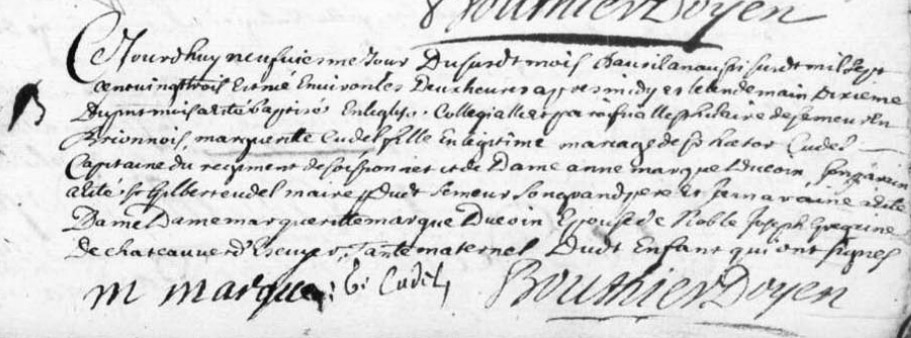 Bouthier Doyen
Cejourdhuy neufviesme Jour Du susdt mois Davril an aussi susdt mil sept
cent vingt trois Est né Environ les Deux heures apres midy et le lendemain Dixieme
Du pnt mois a été baptisée En leglise Collegialle et paroissialle St hilaire de semeur En
B
Brionnois, marguerite Cudel fille En legitime mariage de Sr hector Cudel
Capitaine du regiment de soissonnet et de Dame anne marque Ducoin, son parain
a été Sr Gilbert cudel maire Dudt Semeur son grand pere Et sa maraine a été
Dame Dame marguerite marque Ducoin Epouse de Noble Joseph
De chateauvert Escuyer, Tante maternel Dudt Enfant qui ont signes
m marque G. Cudel Bouthier Doyen